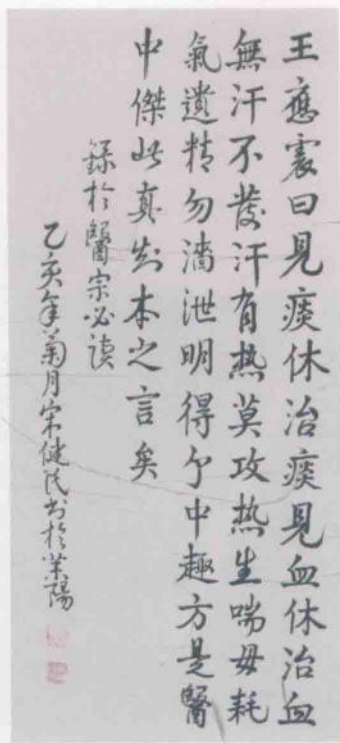 王應震曰見痰休治痰見血休治血
無汗不發汗有热莫攻热生喘毋耗
氣遺精勿濇泄明得个中趣方是醫
中傑此真知本之言矣
錄於醫宗必读
乙亥年菊月宋健民书於莱陽